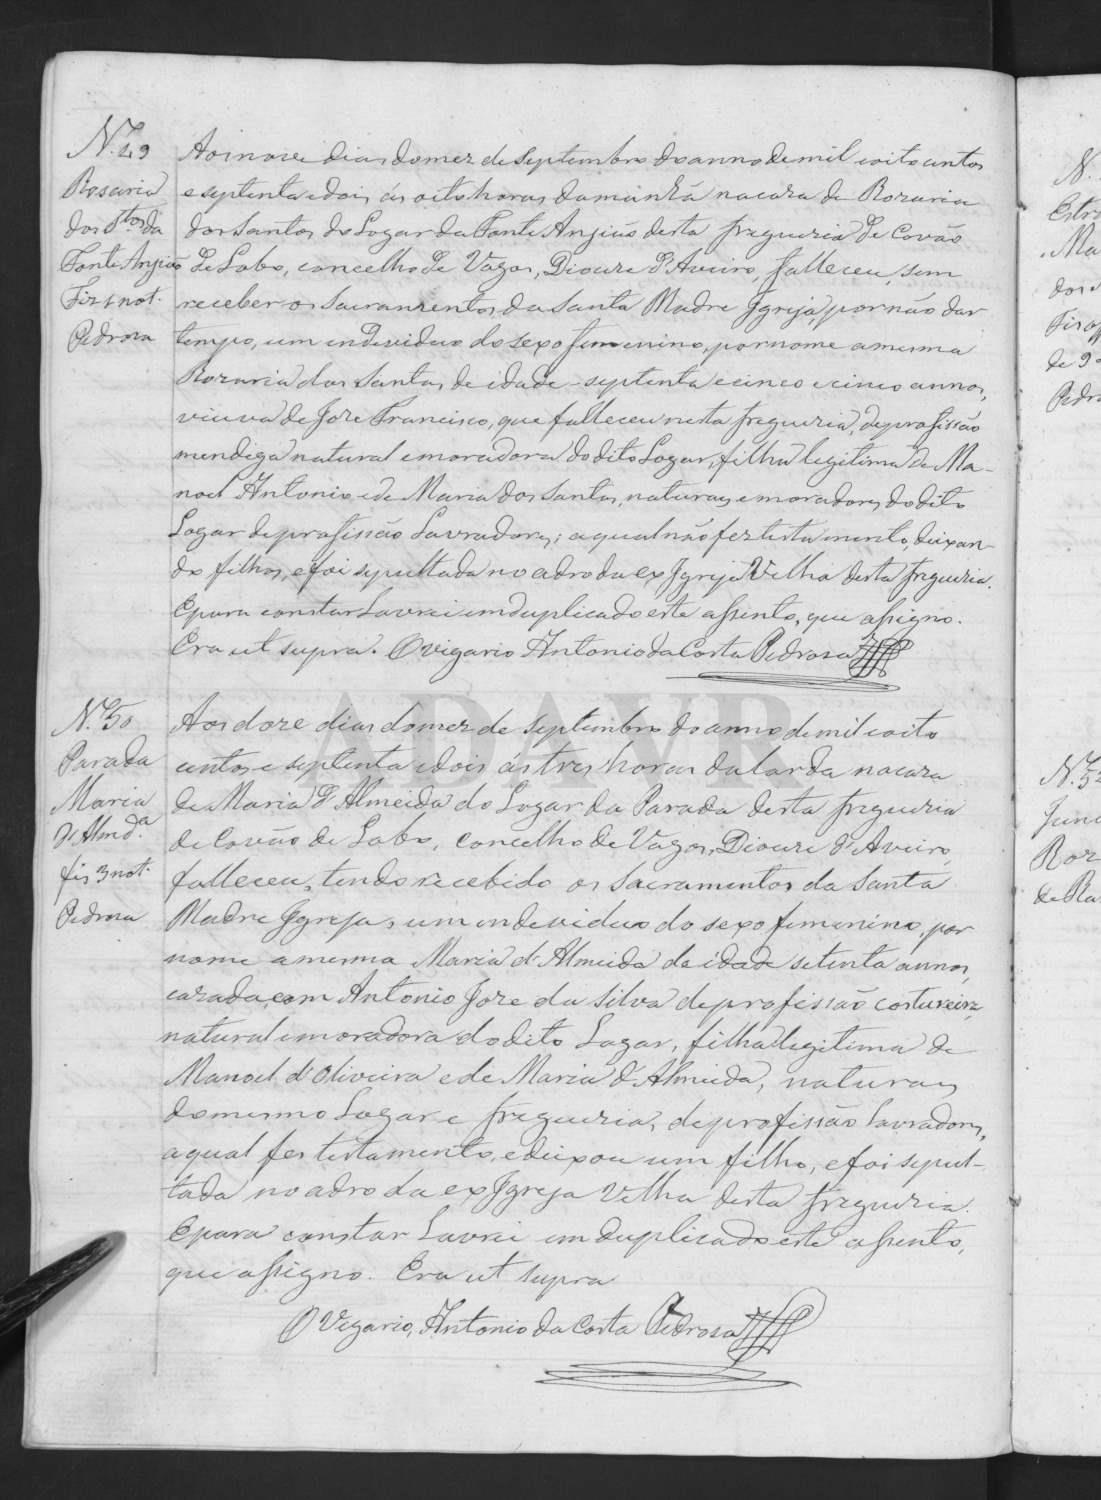 N.º 49
Rosaria
dos S.tos da
Fonte Angião
Fiz 1 not.
Pedrosa
Aos nove dias do mez de Septembro do anno de mil oito centos
e septenta e dois, ás oito horas da manhã na caza de Rozaria
dos Santos do Logar da Fonte Angião desta freguezia de Covão
de Lobo, concelho de Vagos, Diocese d'Aveiro, falleceu, sem
receber os Sacramentos da Santa Madre Igreja, por não dar
tempo, um endeviduo do sexo femenino, por nome a mesma
Rozaria dos Santos de idade - septenta e cinco e cinco annos,
viuva de Joze Francisco, que falleceu nesta freguezia, de profissão
mendiga natural e moradora do dito Logar, filha legitima de Ma-
noel Antonio e de Maria dos Santos, naturaes e moradores do dito
Logar de profissão Lavradores; a qual não fez testamento, deixan-
do filhos, e foi sepultada no adro da ex Igreja Velha desta freguezia.
E para constar Lavrei em duplicado este assento, que assigno.
Era ut supra. O Vigario Antonio da Costa Pedrosa
N.º 50
Parada
Maria
d'Almd.ª
fis 3 not.
Pedrosa
Aos doze dias do mez de Septembro do anno de mil e oito
centos e septenta e dois ás tres horas da tarde na caza
de Maria d'Almeida do Logar da Parada desta freguezia
de Covão de Lobo, concelho de Vagos, Diocese d'Aveiro,
falleceu, tendo recebido os Sacramentos da Santa
Madre Igreja, um endeviduo do sexo femenino, por
nome a mesma Maria d'Almeida de idade setenta annos,
cazada com Antonio Joze da Silva de profissão costureira,
natural e moradora do dito Logar, filha legitima de
Manoel d'Oliveira e de Maria d'Almeida, naturaes
do mesmo Logar e freguezia, de profissão Lavradores,
a qual fes testamento, e deixou um filho, e foi sepul-
tada no adro da ex Igreja Velha desta freguezia.
E para constar Lavrei em duplicado este assento,
que assigno. Era ut supra
O Vigario, Antonio da Costa Pedrosa
ADAVR